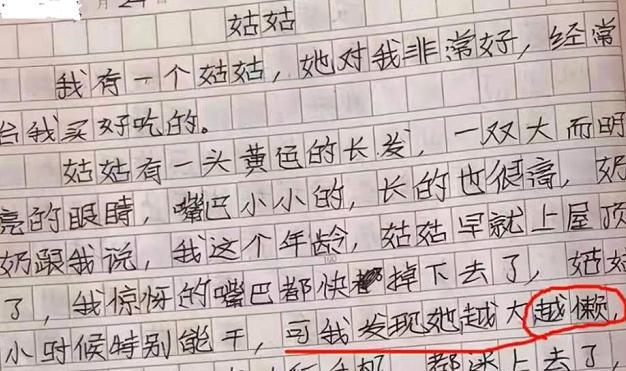 月24
姑姑
我有一个姑姑，她对我非常好，经常
给我买好吃的。
姑姑有一头黄色的长发，一双大而明
亮的眼睛，嘴巴小小的，长的也很高，奶
奶跟我说，我这个年龄，姑姑早就上屋顶
了，我惊伢的嘴巴都快掉下去了，姑姑
小时候特别能干，可我发现她越大越懒，
都迷上去了，